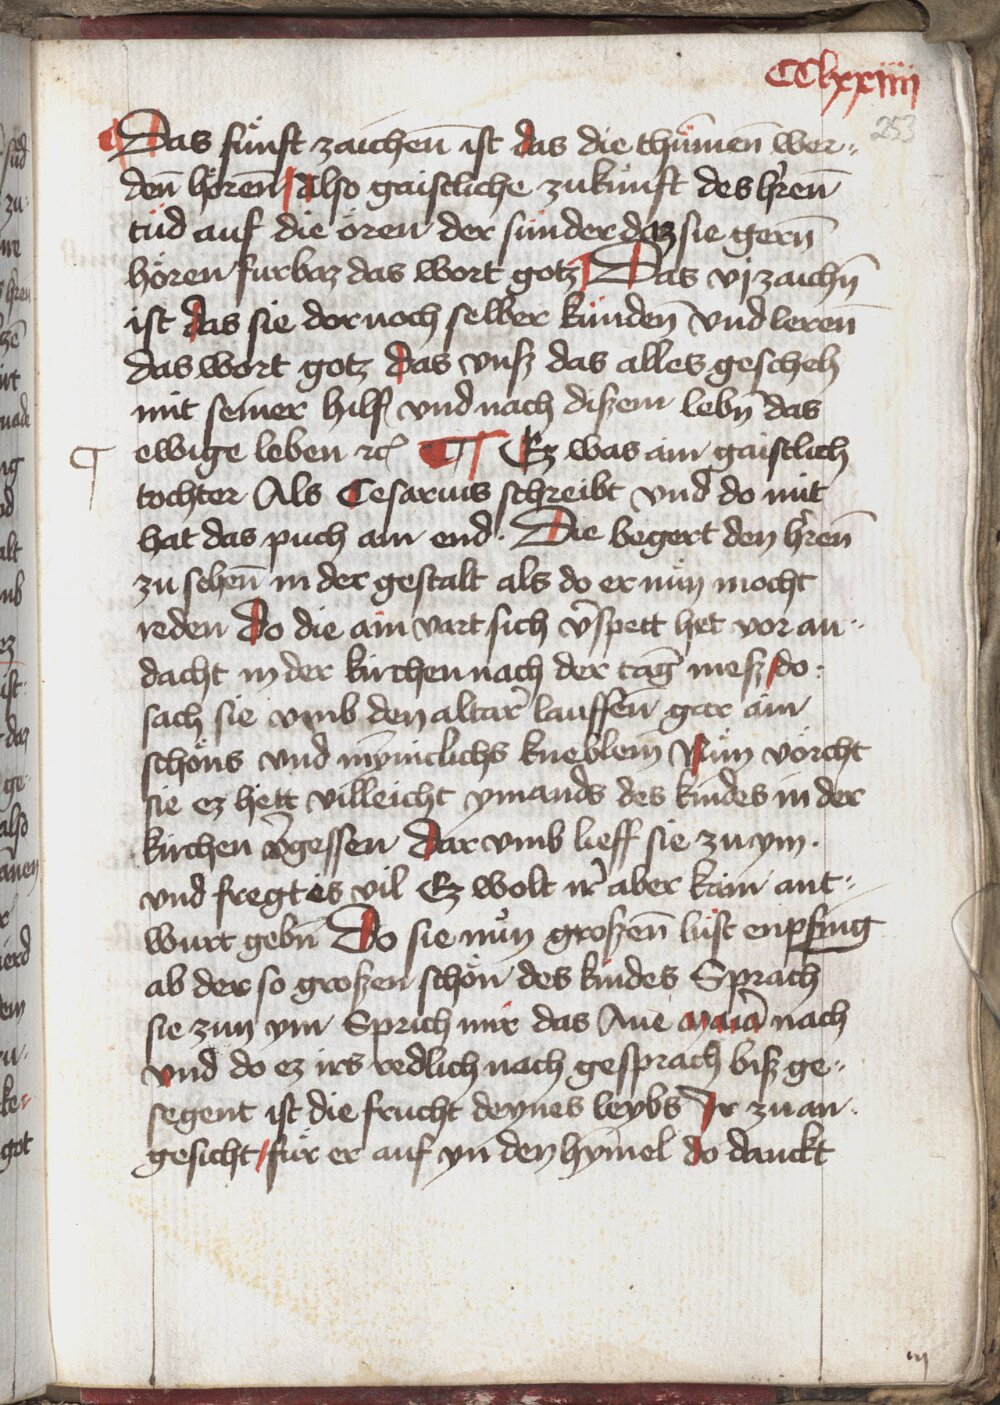 CClxxiiii
253
Das fu̇nft zaichen̄ ist das die thu̇men̄ wer⸗
den̄ hören̄ Also gaistliche zukunft des h̕ren̄
tüd auf die ören der sünder daz sie gern̄
hören furbaz das wort gotz Das vj zaichn̄
ist das sie dornoch selber künden̄ vnd leren̄
das wort gotz das vnſz das alles gescheh
mit seiner hilf vnd nach diſzem lebn̄ das
ewige leben ꝛc̄ ¶ Ez was ain gaistlich
tochter Als Cesarius schreibt vnd do mit
hat das puch ain end. Die begert den h̕ren̄
zu sehen̄ in der gestalt als do er nün mocht
reden Do die ain vart sich v̄spett het vor an⸗
dacht in der kirchen nach der tag meſz do
sach sie vmb den altar lauffen gar ain
schöns vnd mynniclichs kneblein Nün vörcht
sie ez hett villeicht ymands des kindes in der
kirchen v̄gessen Dar vmb lieff sie zu ym.
vnd fregt es vil Ez wolt ir aber kain ant⸗
wurt gebn̄ Do sie nün groſzen̄ lust enpfing
ab der so groſzen schön des kindes Sprach
sie zun ym Sprich mir das Aue maria nach
vnd do ez irs redlich nach gesprach biſz ge⸗
segent ist die frucht deynes leybs Ir zu an⸗
gesicht für er auf yn den hymel do danckt
iij